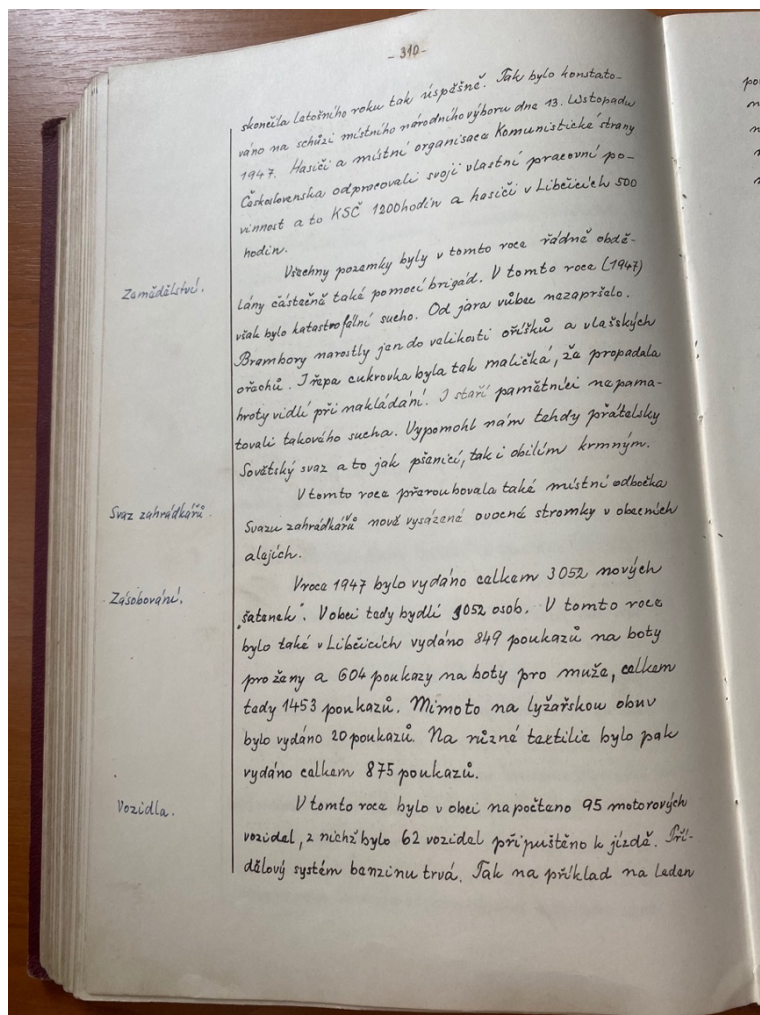 - 310 -
skončila letošního roku tak úspěšně. Tak bylo konstato-
váno na schůzi místního národního výboru dne 13. listopadu
1947. Hasiči a místní organisace Komunistické strany
Československa odpracovali svoji vlastní pracovní po-
vinnost a to KSČ 1200 hodin a hasiči v Libčicích 500
hodin.
Zemědělství.
Všechny pozemky byly v tomto roce řádně obdě-
lány částečně také pomocí brigád. V tomto roce (1947)
však bylo katastrofální sucho. Od jara vůbec nezapršelo.
Brambory narostly jen do velikosti oříšků a vlašských
ořechů. I řepa cukrovka byla tak maličká, že propadala
hroty vidlí při nakládání. I staří pamětníci nepama-
tovali takového sucha. Vypomohl nám tehdy přátelsky
Sovětský svaz a to jak pšenicí, tak i obilím krmným.
Svaz zahrádkářů.
V tomto roce přeroubovala také místní odbočka
Svazu zahrádkářů nově vysázené ovocné stromky v obecních
alejích.
Zásobování.
V roce 1947 bylo vydáno celkem 3052 nových
"šatenek". V obci tedy bydlí 3052 osob. V tomto roce
bylo také v Libčicích vydáno 849 poukazů na boty
pro ženy a 604 poukazy na boty pro muže, celkem
tedy 1453 poukazů. Mimoto na lyžařskou obuv
bylo vydáno 20 poukazů. Na různé textilie bylo pak
vydáno celkem 875 poukazů.
Vozidla.
V tomto roce bylo v obci napočteno 95 motorových
vozidel, z nichž bylo 62 vozidel připuštěno k jízdě. Pří-
dělový systém benzinu trvá. Tak na příklad na leden